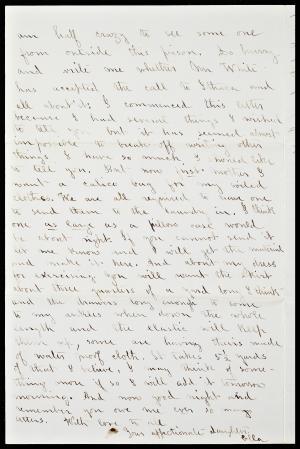 am half crazy to see some one
from outside this prison. Do hurry
and write me whether Mr White
has accepted the call to Ithaca and
all about it. I commenced this letter
because I had several things I wished
to tell you but it has seemed almost
impossible to break off writing other
things I have so much I should like
to tell you. But now just mother I
want a calico bag for my soiled
clothes. We are all required to have one
to send them to the laundry in. I think
one as large as a pillow case would
be about right. If you cannot send it
let me know and I will get the material
and make it here. And about my dress
for exercising you will want the skirt
about three quarters of a yard long I think
and the drawers long enough to come
to my ankles when down the whole
length and the elastic will keep
them up, some are having theirs made
of water proof cloth. It takes 5½ yards
of that I believe. I may think of some-
thing more if so I will add it tomorrow
morning. And now good night and
remember you owe me ever so many
letters. With love to all
Your affectionate daughter
Ella